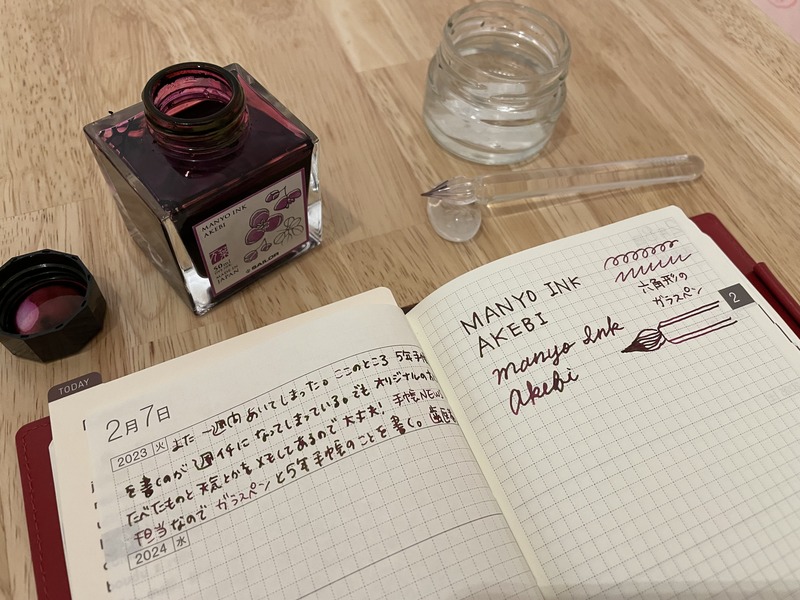 MANYO INK
AKEBI
万葉
50ml
MADE IN
JAPAN
SAILOR
TODAY
2月7日
2023 火
また一週間あいてしまった。ここのところ5年手帳
を書くのが週イチになってしまっている。でもオリジナルの
たべたものと天気とかをメモしてあるので大丈夫! 手帳NEWS
担当なのでガラスペンと5年手帳のことを書く。
2024 水
MANYO INK
AKEBI
manyo Ink
Akebi
六角形の
ガラスペン
2